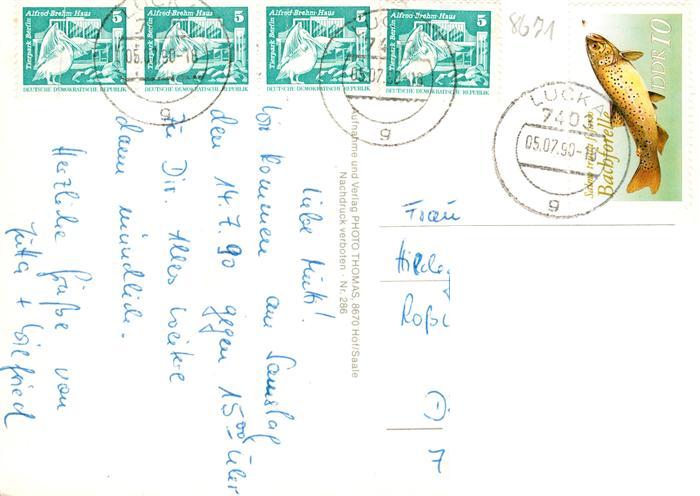 Tierpark Berlin
Alfred-Brehm-Haus
5
DEUTSCHE DEMOKRATISCHE REPUBLIK
Tierpark Berlin
Alfred-Brehm-Haus
5
DEUTSCHE DEMOKRATISCHE REPUBLIK
Tierpark Berlin
Alfred-Brehm-Haus
5
DEUTSCHE DEMOKRATISCHE REPUBLIK
Tierpark Berlin
Alfred-Brehm-Haus
5
DEUTSCHE DEMOKRATISCHE REPUBLIK
05.07.90-18
g
05.07.90-18
g
8671
LUCKA
7403
05.07.90-18
g
DDR 10
Bachforelle
Liebe
Wir kommen am Samstag
den 14.7.90 gegen 15⁰⁰ Uhr
zu Dir. Alles weitere
dann mündlich.
Herzliche Grüße von
Jutta + Wilfried
Aufnahme und Verlag PHOTO THOMAS, 8670 Hof/Saale
Nachdruck verboten · Nr. 286
Frau
7